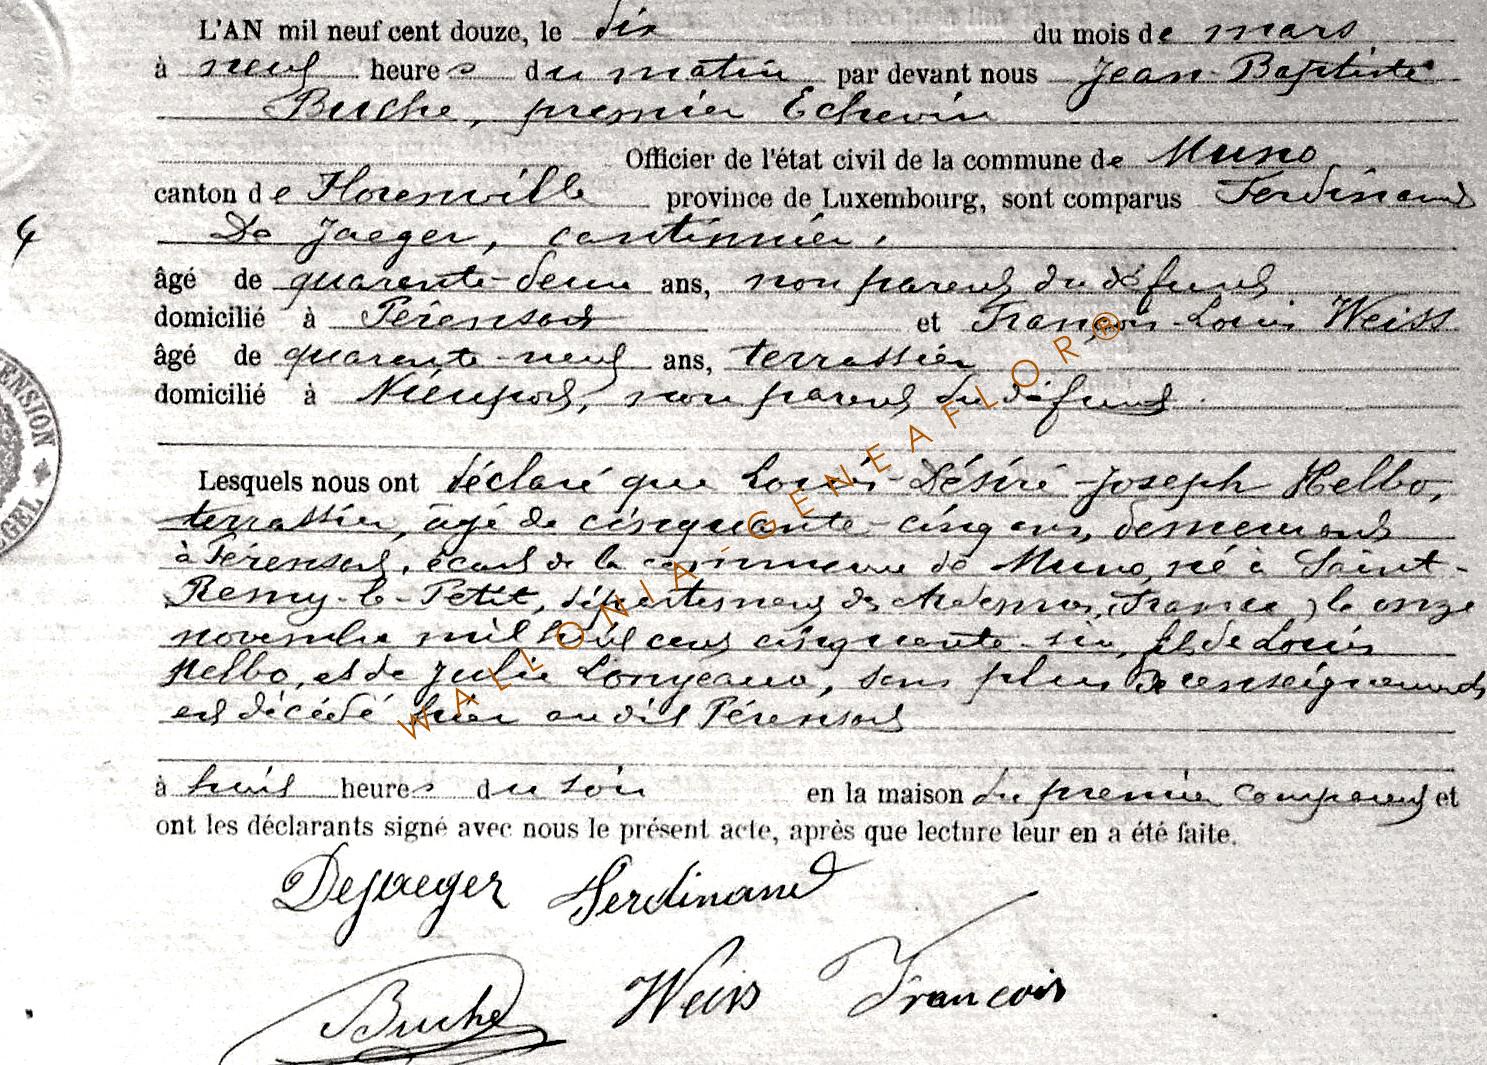 L'AN mil neuf cent douze, le dix du mois de mars
à neuf heures du matin par devant nous Jean-Baptiste
Buche, premier Echevin
Officier de l'état civil de la commune de Muno
canton de Florenville province de Luxembourg, sont comparus Ferdinand
De Jaeger, cantinnier,
4
âgé de quarante-deux ans, non parent du défunt
domicilié à Pérensart et François-Louis Weiss
âgé de quarante-neuf ans, terrassier
domicilié à Nieuport, non parent du défunt.
ENSION
GEL
Lesquels nous ont déclaré que Louis-Désiré-Joseph Helbo,
terrassier, âgé de cinquante-cinq ans, demeurant
à Pérensart, écart de la commune de Muno, né à Saint-
Remy-le-Petit, département des Ardennes (France) le onze
novembre mil huit cent cinquante-six, fils de Louis
Helbo, et de Julie, sans plus de renseignements
est décédé hier au dit Pérensart
à huit heures du soir en la maison du premier comparant et
ont les déclarants signé avec nous le présent acte, après que lecture leur en a été faite.
DeJaeger Ferdinand
Buche Weiss Francois
WALLONIA-GENEAFLOR®